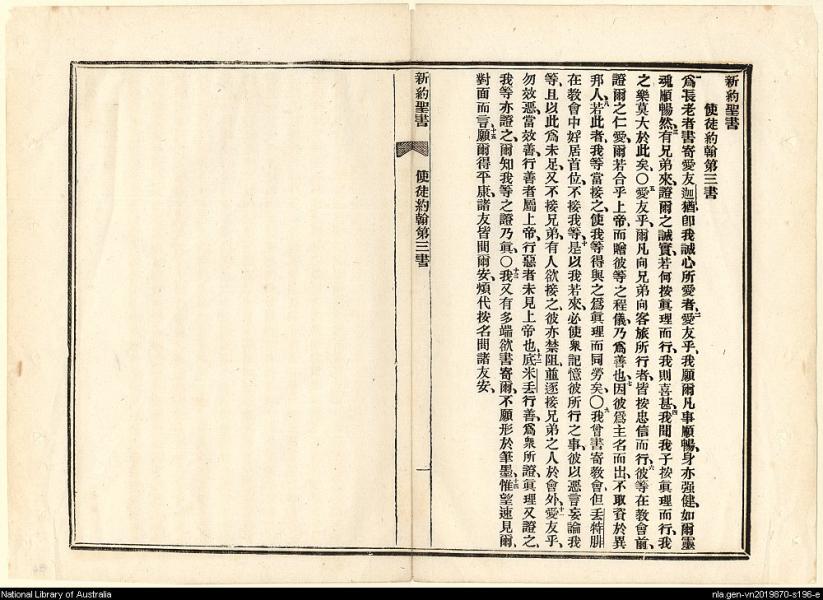 新約聖書
使徒約翰第三書
爲長老者書寄愛友迦猶卽我誠心所愛者、二愛友乎、我願爾凡事順暢、身亦强健、如爾靈
魂順暢然、三有兄弟來、證爾之誠實、若何按眞理而行、我則喜甚、四我聞我子按眞理而行、我
之樂莫大於此矣、〇五愛友乎、爾凡向兄弟向客旅所行者、皆按忠信而行、六彼等在教會前、
證爾之仁愛、爾若合乎上帝、而贈彼等之程儀、乃爲善也、七因彼爲主名而出、不取資於異
邦人、八若此者、我等當接之、使我等得與之爲眞理而同勞矣、〇九我曾書寄教會、但丟特腓
在教會中、好居首位、不接我等、十是以我若來、必使衆記憶彼所行之事、彼以惡言妄論我
等、且以此爲未足、又不接兄弟、有人欲接之、彼亦禁阻、並逐接兄弟之人於會外、十一愛友乎、
勿效惡、當效善、行善者屬上帝、行惡者未見上帝也、十二底米丟行善、爲衆所證、眞理又證之、
我等亦證之、爾知我等之證乃眞、〇十三我又有多端欲書寄爾、不願形於筆墨、十四惟望速見爾、
對面而言、十五願爾得平康、諸友皆問爾安、煩代按名問諸友安、
新約聖書
使徒約翰第三書
一
National Library of Australia
nla.gen-vn2019870-s196-e